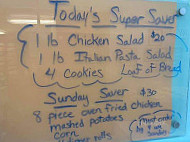 Today's Super Saver
1 lb Chicken Salad $20
1 lb Italian Pasta Salad
4 Cookies Loaf of Bread
Sunday Saver $30
8 piece oven fried chicken
mashed potatoes
corn
rolls
must order
by
Sunday